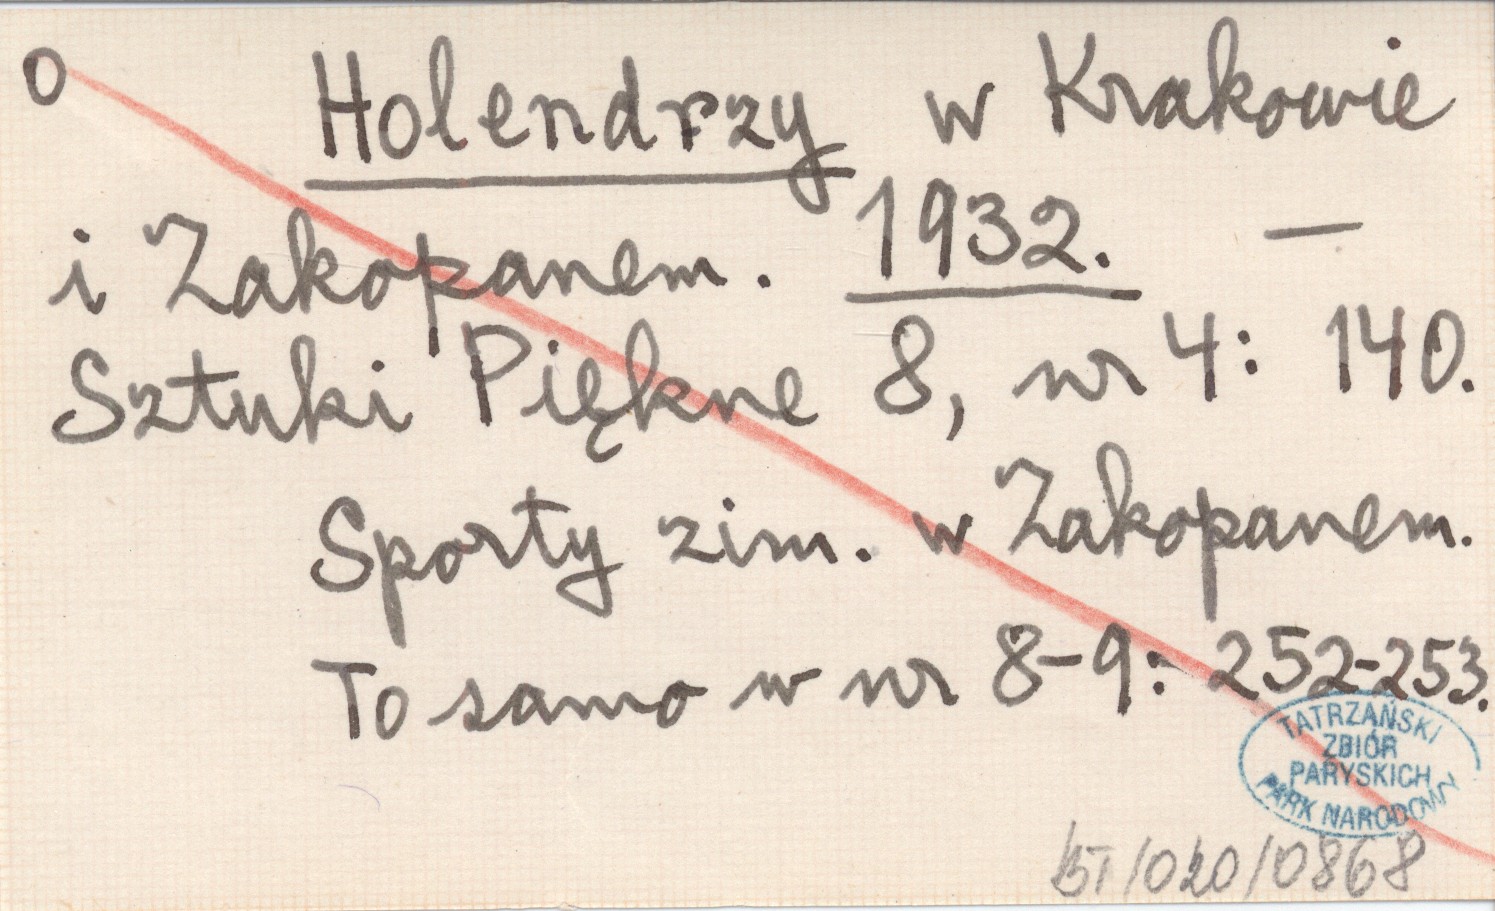 O Holendrzy w Krakowie
i Zakopanem. 1932. —
Sztuki Piękne 8, nr 4: 140.
Sporty zim. w Zakopanem.
To samo w nr 8-9: 252-253.
TATRZAŃSKI
ZBIÓR
PARYSKICH
PARK NARODOWY
BT/020/0868